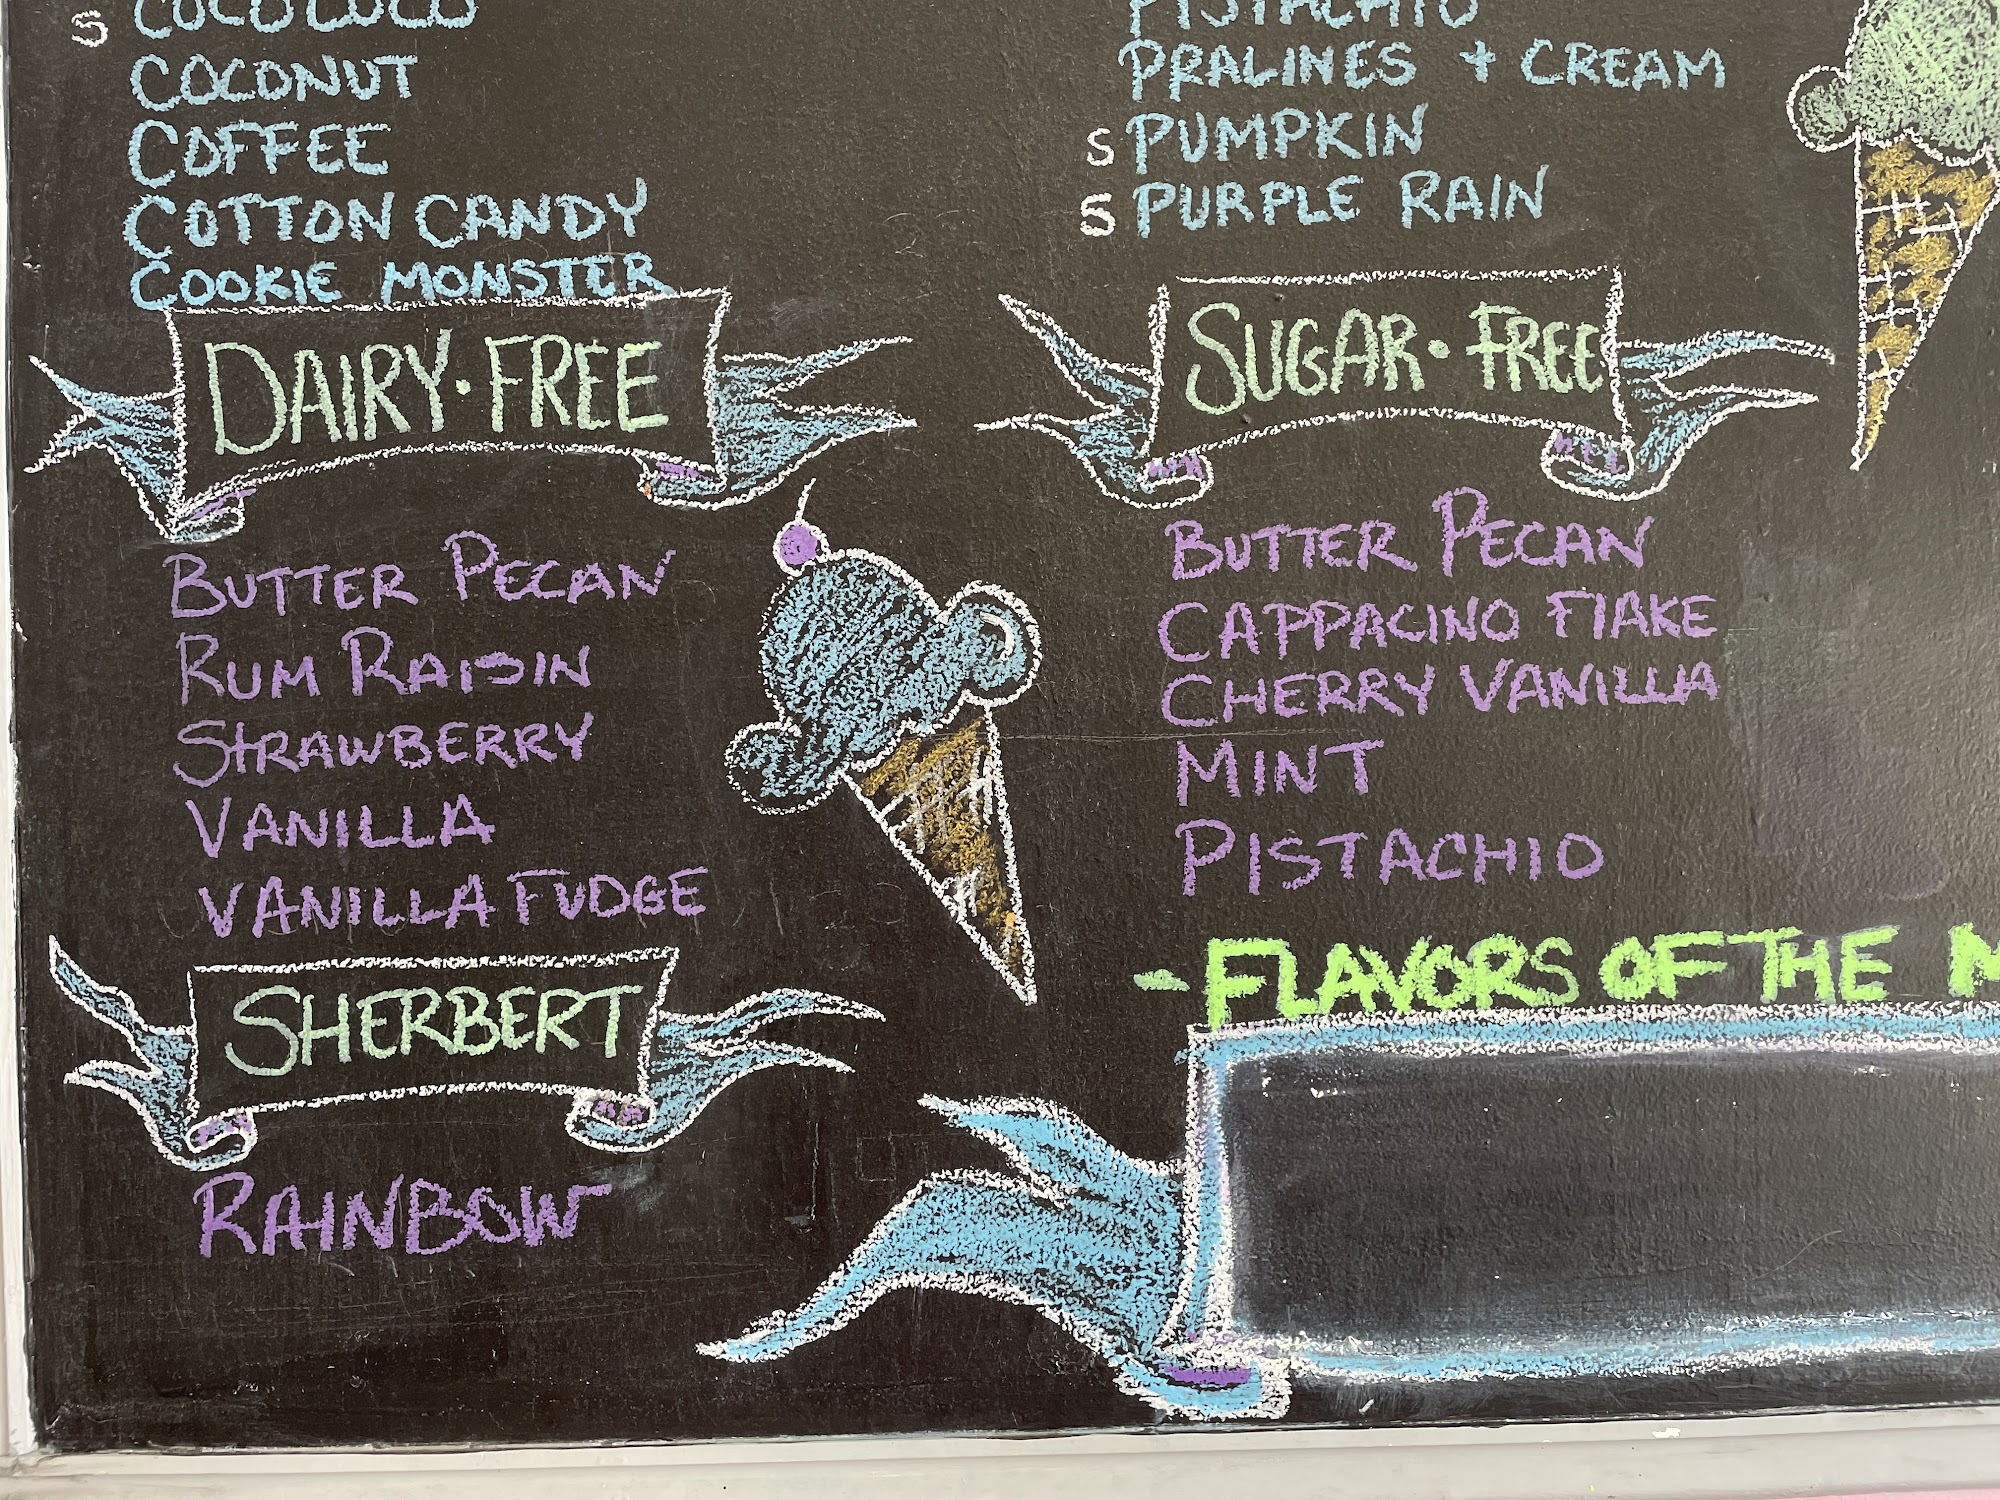 S COCO LOCO
COCONUT
COFFEE
COTTON CANDY
COOKIE MONSTER
DAIRY•FREE
BUTTER PECAN
RUM RAISIN
STRAWBERRY
VANILLA
VANILLA FUDGE
SHERBERT
RAINBOW
PISTACHIO
PRALINES + CREAM
S PUMPKIN
S PURPLE RAIN
SUGAR•FREE
BUTTER PECAN
CAPPACINO FLAKE
CHERRY VANILLA
MINT
PISTACHIO
-FLAVORS OF THE